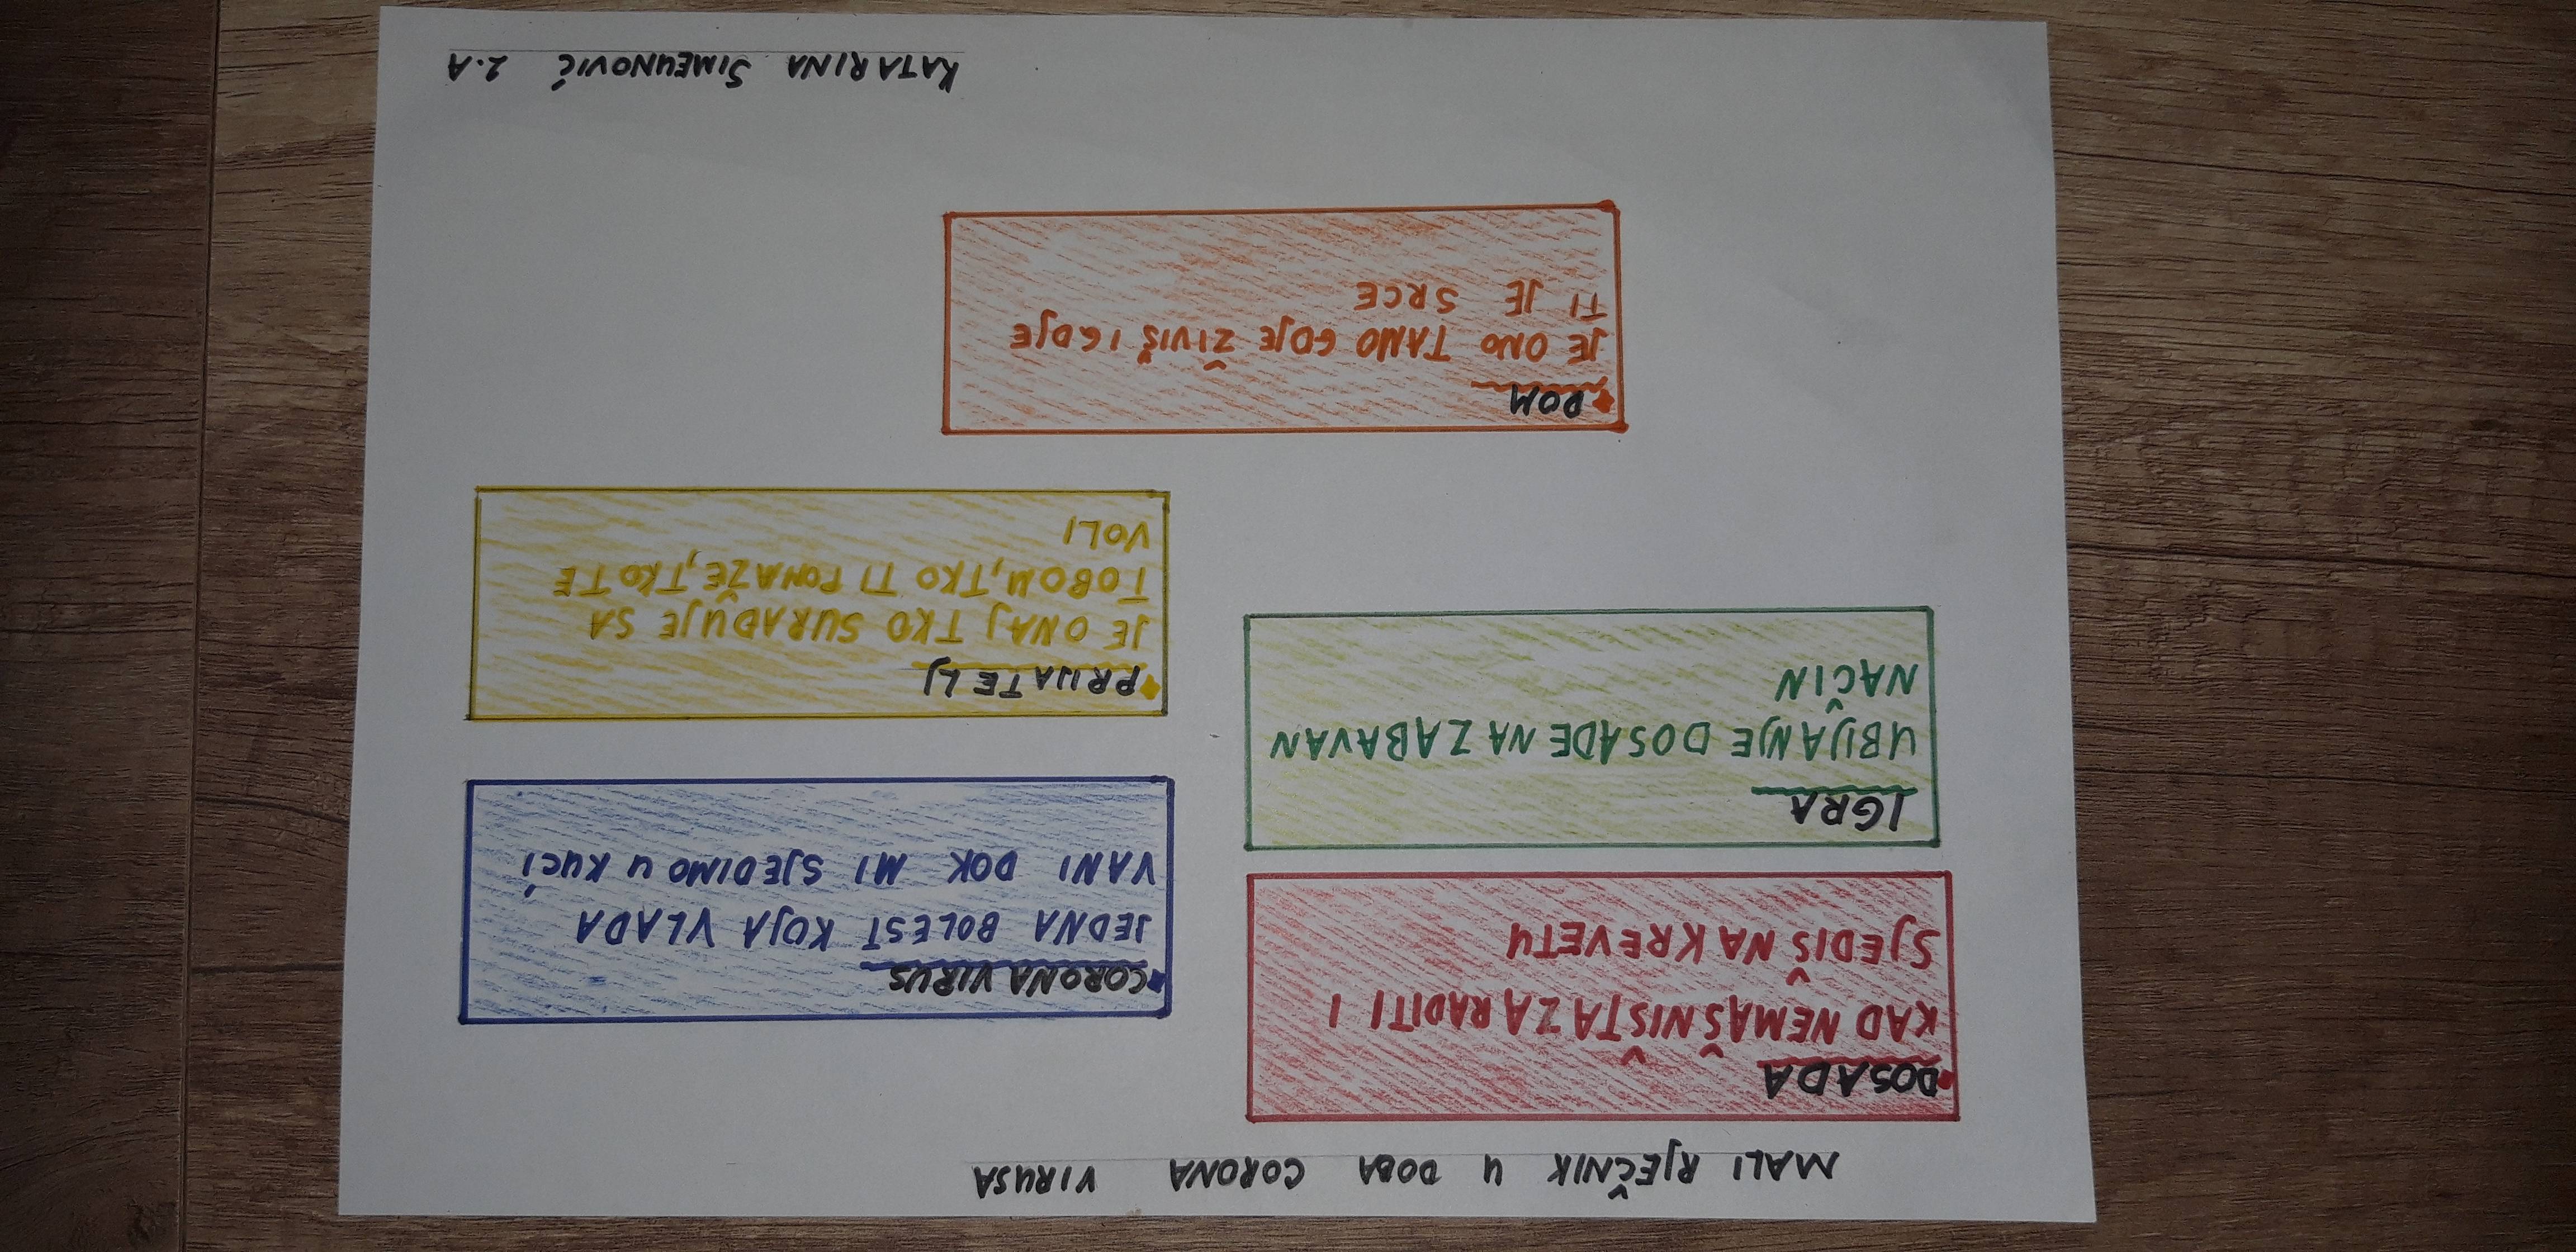 MALI RJEČNIK U DOBA CORONA VIRUSA
DOSADA
KAD NEMAŠ NIŠTA ZA RADITI I
SJEDIŠ NA KREVETU
IGRA
UBIJANJE DOSADE NA ZABAVAN
NAČIN
CORONA VIRUS
JEDNA BOLEST KOJA VLADA
VANI DOK MI SJEDIMO U KUĆI
PRIJATELJ
JE ONAJ TKO SURAĐUJE SA
TOBOM, TKO TI POMAŽE, TKO TE
VOLI
DOM
JE ONO TAMO GDJE ŽIVIŠ I GDJE
TI JE SRCE
KATARINA SIMEUNOVIĆ 2.A